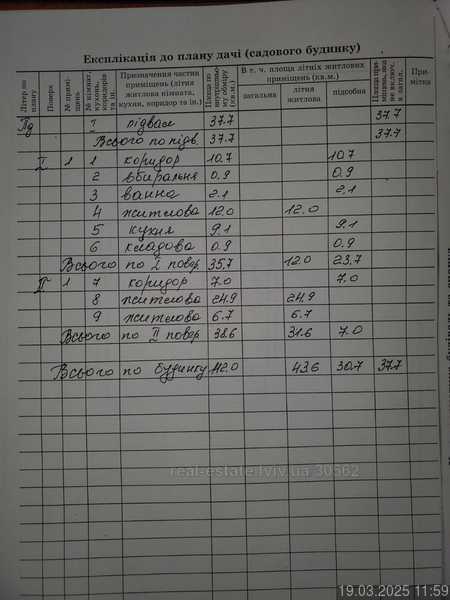 Експлікація до плану дачі (садового будинку)
Літер по плану | Поверх | № приміщень | № кімнат, кухонь, коридорів та ін. | Призначення частин приміщень (літня житлова кімната, кухня, коридор та ін.) | Площа по внутрішньому обміру (кв.м.) | В т. ч. площа літніх житлових приміщень (кв.м.) | Площа приміщень, яка не включ. в загал. | Примітка
загальна | літня житлова | підсобна
Пд | I | підвал | 37.7 | 37.7
Всього по підв. | 37.7 | 37.7
I | 1 | 1 | коридор | 10.7 | 10.7
2 | вбиральня | 0.9 | 0.9
3 | ванна | 2.1 | 2.1
4 | житлова | 12.0 | 12.0
5 | кухня | 9.1 | 9.1
6 | кладова | 0.9 | 0.9
Всього по I повер. | 35.7 | 12.0 | 23.7
II | 1 | 7 | коридор | 7.0 | 7.0
8 | житлова | 24.9 | 24.9
9 | житлова | 6.7 | 6.7
Всього по II повер. | 38.6 | 31.6 | 7.0
Всього по будинку | 112.0 | 43.6 | 30.7 | 37.7
real-estate.lviv.ua 30562
19.03.2025 11:59